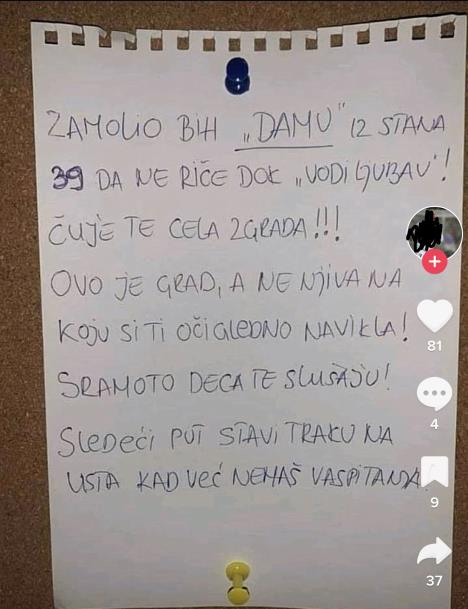 ZAMOLIO BIH „DAMU" IZ STANA
39 DA NE RIČE DOK „VODI LJUBAV"!
ČUJE TE CELA ZGRADA!!!
OVO JE GRAD, A NE NJIVA NA
KOJU SI TI OČIGLEDNO NAVIKLA!
SRAMOTO DECA TE SLUŠAJU!
SLEDEĆI PUT STAVI TRAKU NA
USTA KAD VEĆ NEMAŠ VASPITANJA!
81
4
9
37